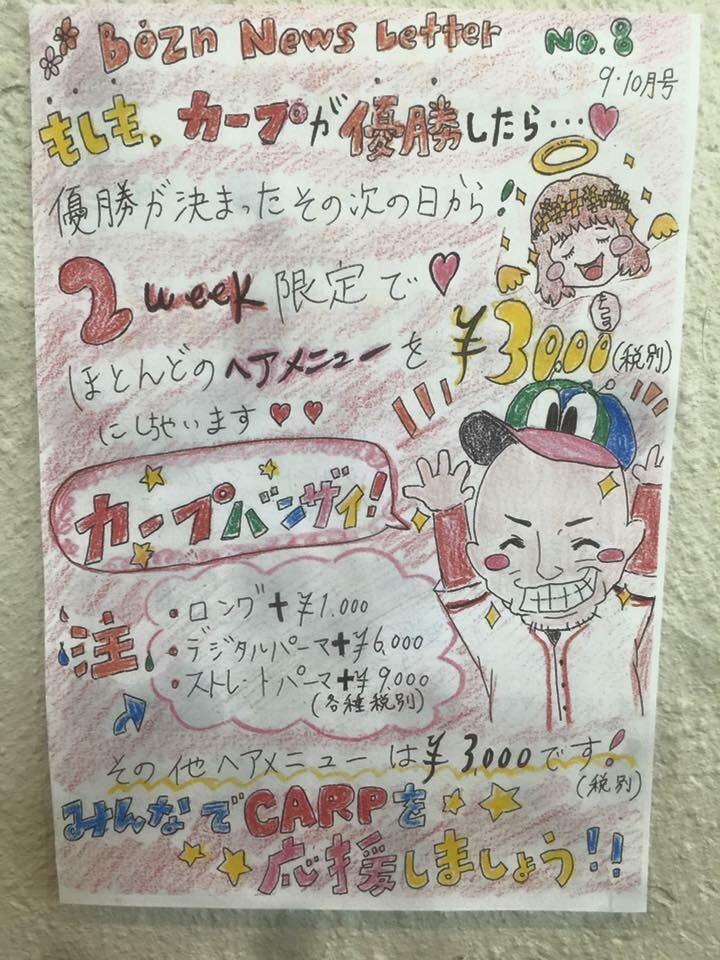 Bozn News Letter No.8
9・10月号
もしも、カープが優勝したら…
優勝が決まったその次の日から!
2 week 限定で
ほとんどのヘアメニューを ¥3000(税別)
にしちゃいます
カープバンザイ!
注
・ロング+¥1.000
・デジタルパーマ+¥6,000
・ストレートパーマ+¥9,000
(各種税別)
その他ヘアメニューは¥3,000です!
(税別)
みんなでCARPを
応援しましょう!!